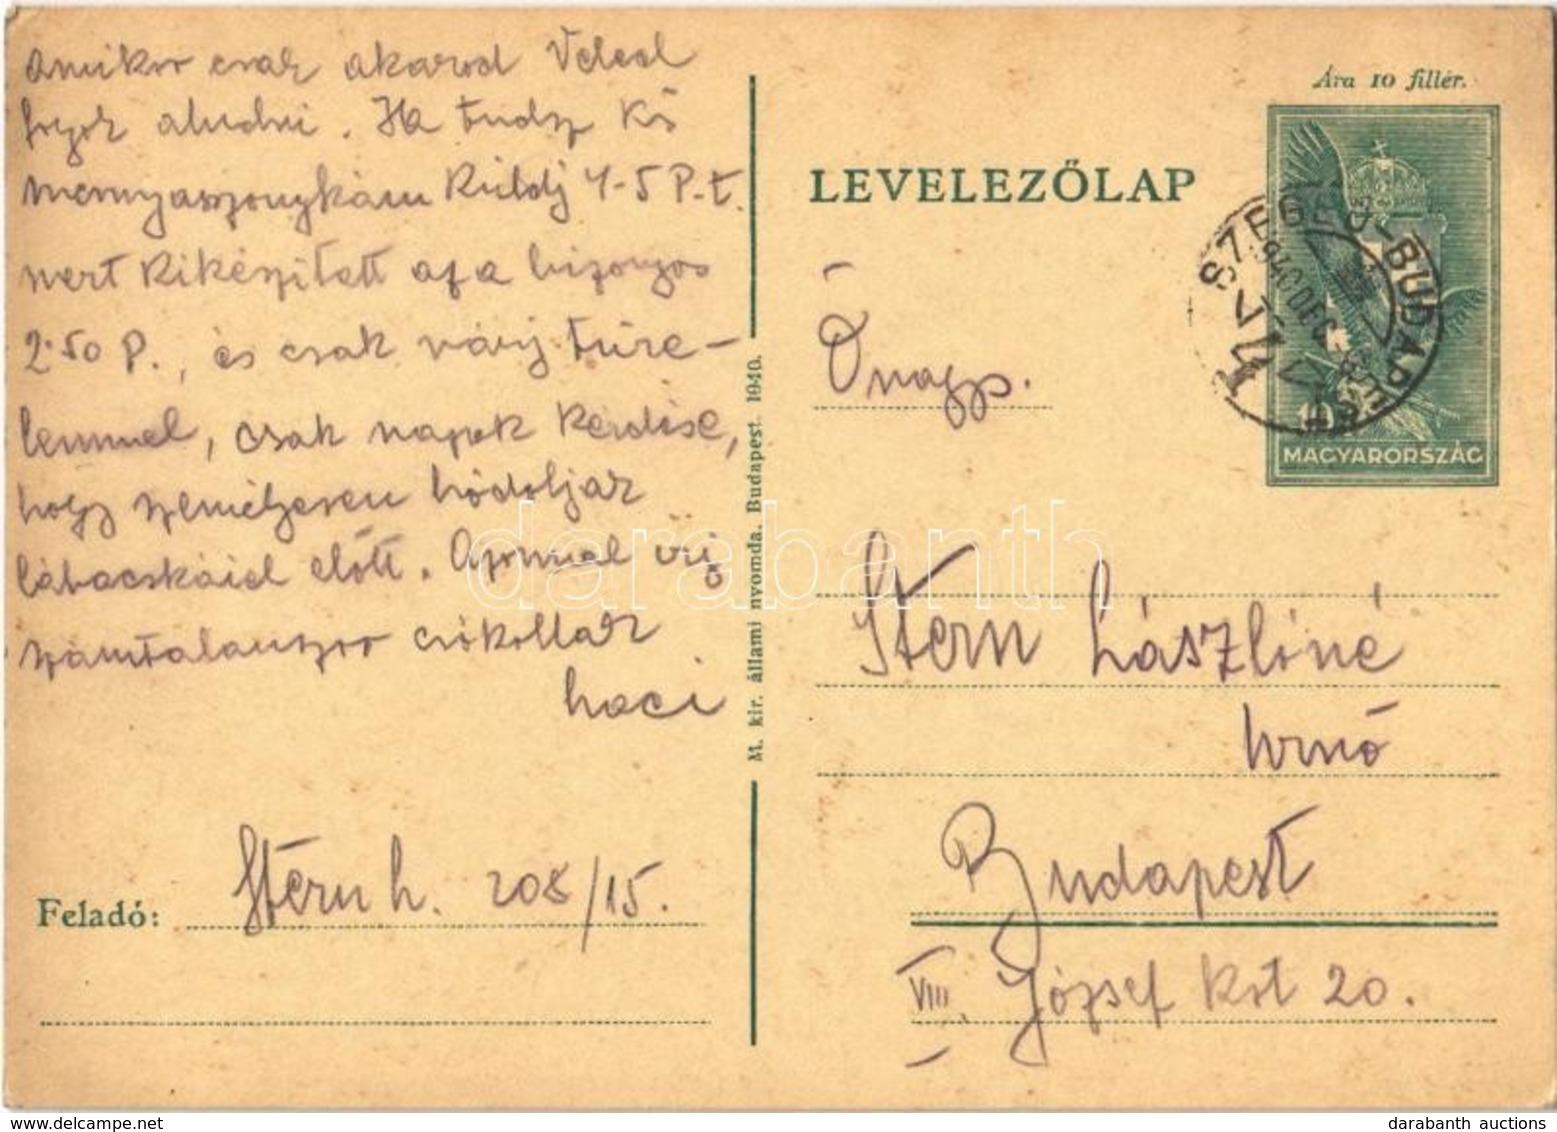 amikor csak akarod Veled
fogok aludni. Ha tudsz Kis
mennyasszonykám Küldj 4-5 P.-t.
mert Kikészített az a bizonyos
2.50 P., és csak várj türe-
lemmel, csak napok kérdése,
hogy személyesen hódoljak
lábacskáid előtt. Azonnal írj
számtalanszor csókollak
Laci
Feladó: Stern L. 208/15.
M. kir. állami nyomda. Budapest. 1940.
Ára 10 fillér.
LEVELEZŐLAP
MAGYARORSZÁG
SZEGED-BUDAPEST
940 DEC
Őnagys.
Stern Lászlóné
úrnő
Budapest
VIII. József krt 20.
darabanth
darabanth auctions